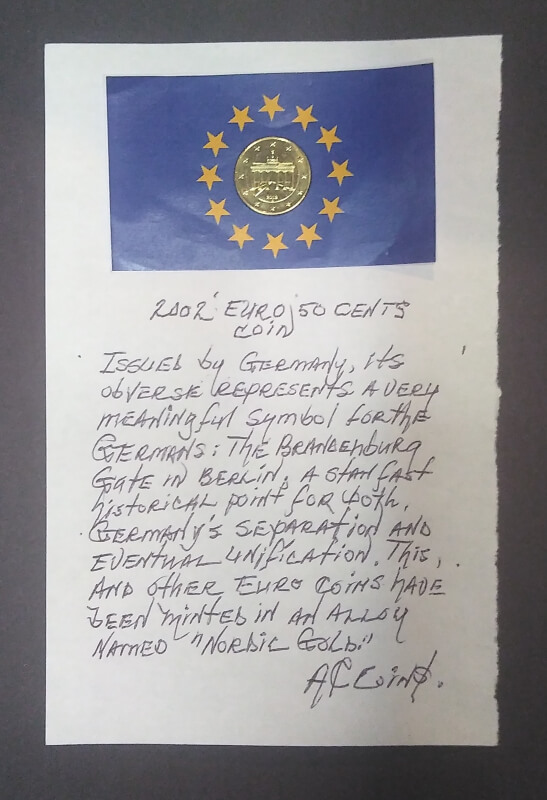 2002' EURO 50 CENTS
COIN
ISSUED by GERMANY, its
obverse REPRESENTS A VERY
meaningful symbol for the
GERMANS: THE BRANDENBURG
GATE IN BERLIN. A STANFAST
historical point for both,
GERMANY'S SEPARATION AND
EVENTUAL UNIFICATION. This,
AND other EURO COINS HAVE
BEEN MINTED IN AN ALLOY
NAMED "NORDIC GOLD."
AC COINS.